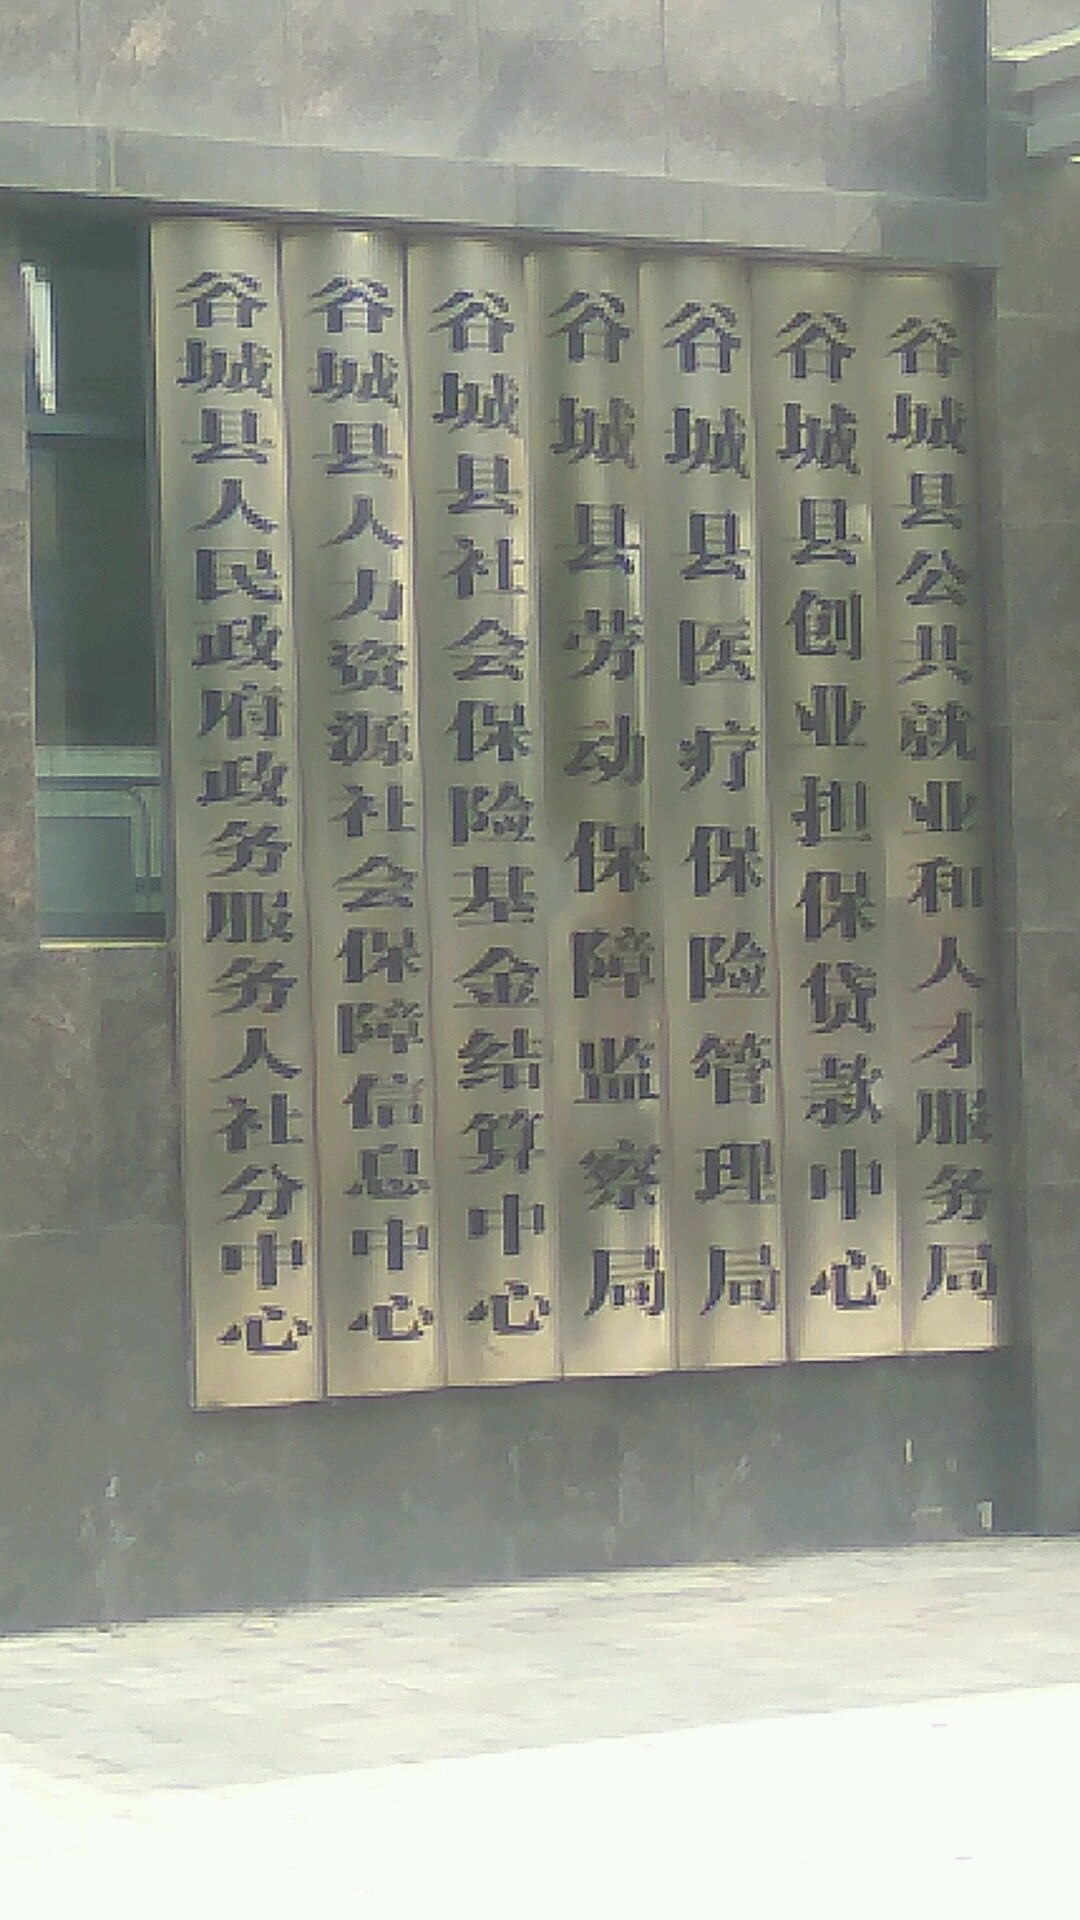 谷城县人民政府政务服务人社分中心
谷城县人力资源社会保障信息中心
谷城县社会保险基金结算中心
谷城县劳动保障监察局
谷城县医疗保险管理局
谷城县创业担保贷款中心
谷城县公共就业和人才服务局